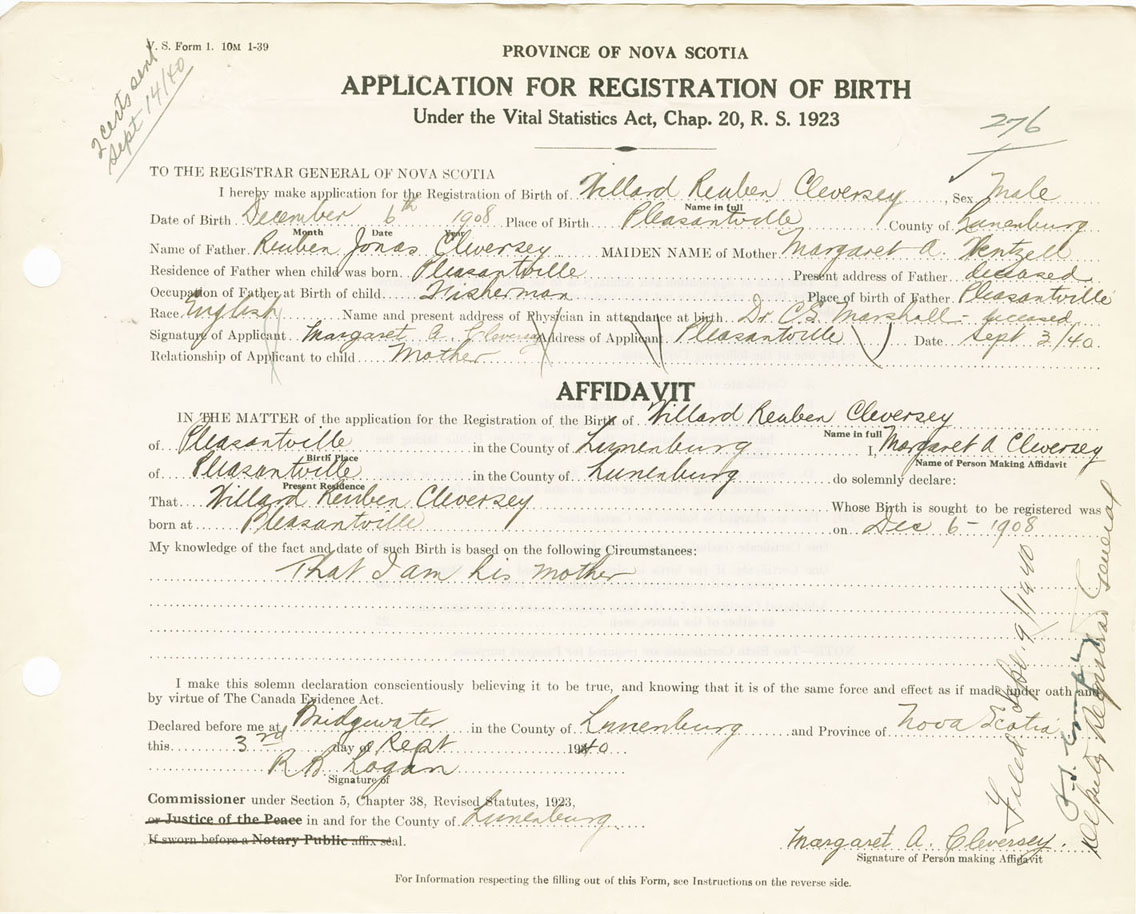 V. S. Form 1. 10M 1-39
2 certs sent
Sept 14/40
PROVINCE OF NOVA SCOTIA
APPLICATION FOR REGISTRATION OF BIRTH
Under the Vital Statistics Act, Chap. 20, R. S. 1923
276
TO THE REGISTRAR GENERAL OF NOVA SCOTIA
I hereby make application for the Registration of Birth of Willard Reuben Cleversey, Sex Male
Name in full
Date of Birth December 6th 1908 Place of Birth Pleasantville County of Lunenburg
Month Date Year
Name of Father Reuben Jonas Cleversey MAIDEN NAME of Mother Margaret A. Wentzell
Residence of Father when child was born. Pleasantville Present address of Father deceased
Occupation of Father at Birth of child. Fisherman Place of birth of Father Pleasantville
Race English Name and present address of Physician in attendance at birth Dr. C.S. Marshall - deceased
Signature of Applicant Margaret A. Cleversey Address of Applicant Pleasantville Date Sept 3/40
Relationship of Applicant to child Mother
AFFIDAVIT
IN THE MATTER of the application for the Registration of the Birth of Willard Reuben Cleversey
Name in full
of Pleasantville in the County of Lunenburg I, Margaret A Cleversey
Birth Place Name of Person Making Affidavit
of Pleasantville in the County of Lunenburg do solemnly declare:
Present Residence
That Willard Reuben Cleversey Whose Birth is sought to be registered was
born at Pleasantville on Dec 6 - 1908
My knowledge of the fact and date of such Birth is based on the following Circumstances:
That I am his Mother
I make this solemn declaration conscientiously believing it to be true, and knowing that it is of the same force and effect as if made under oath and
by virtue of The Canada Evidence Act.
Declared before me at Bridgewater in the County of Lunenburg and Province of Nova Scotia
this 3rd day of Sept 1940
R B Logan
Signature of
Commissioner under Section 5, Chapter 38, Revised Statutes, 1923,
or Justice of the Peace in and for the County of Lunenburg
If sworn before a Notary Public affix seal.
Margaret A. Cleversey.
Signature of Person making Affidavit
For Information respecting the filling out of this Form, see Instructions on the reverse side.
Filed Sept. 9/1940
Deputy Registrar General